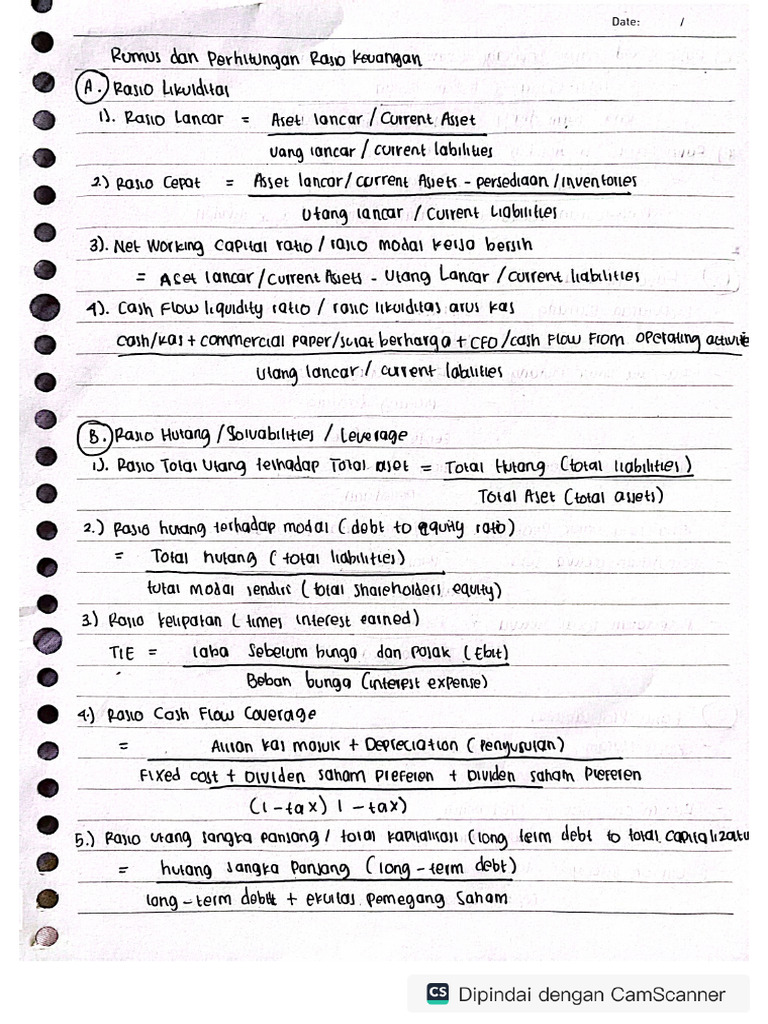 Date: /
Rumus dan Perhitungan Rasio Keuangan
A. Rasio Likuiditas
1). Rasio Lancar = Aset lancar / Current Asset
Uang lancar / current labilities
2.) Rasio Cepat = Asset lancar / current Assets - persediaan / inventories
Utang lancar / Current Liabilities
3). Net Working Capital ratio / rasio modal kerja bersih
= Aset lancar / Current Assets - Utang Lancar / current liabilities
4). Cash Flow liquidity ratio / rasio likuiditas arus kas
cash/kas + commercial paper/surat berharga + CFO / cash Flow From operating activitie
Utang lancar / current labilities
B. Rasio Hutang / Solvabilities / Leverage
1). Rasio Total Utang terhadap Total aset = Total Hutang (total liabilities)
Total Aset (total assets)
2.) Rasio hutang terhadap modal (debt to equity ratio)
= Total hutang (total liabilities)
total modal sendiri (total shareholders equity)
3.) Rasio kelipatan (times interest earned)
TIE = laba sebelum bunga dan pajak (Ebit)
Beban bunga (interest expense)
4.) Rasio Cash Flow Coverage
= Aliran kas masuk + Depreciation (Penyusutan)
Fixed cost + Dividen saham Preferen + Dividen saham Preferen
(1 - tax) 1 - tax)
5.) Rasio utang jangka panjang / total kapitalisasi (long term debt to total capitalizati
= hutang jangka Panjang (long-term debt)
long-term debt + ekuitas Pemegang Saham
CS Dipindai dengan CamScanner